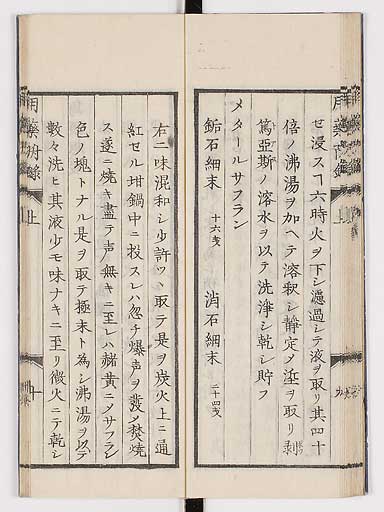 セ浸スヿ六時火ヲ下シ濾過シテ液ヲ取リ其四十
倍ノ沸湯ヲ加ヘテ溶釈シ静定メ垽ヲ取リ剥
篤亜斯ノ溶水ヲ以テ洗浄シ乾シ貯フ
メタールサフラン
鉐石細末 十六戔 消石細末 二十四戔
右二味混和シ少許ツヽ取テ是ヲ炭火上ニ通
紅セル坩鍋中ニ投スレハ忽チ爆声ヲ発メ焚焼
ス遂ニ焼キ盡テ声無キニ至レハ赭黄ニメサフラン
色ノ塊トナル是ヲ取テ極末ト為シ沸湯ヲ以テ
数々洗ヒ其液少モ味ナキニ至リ微火ニテ乾シ
上
十